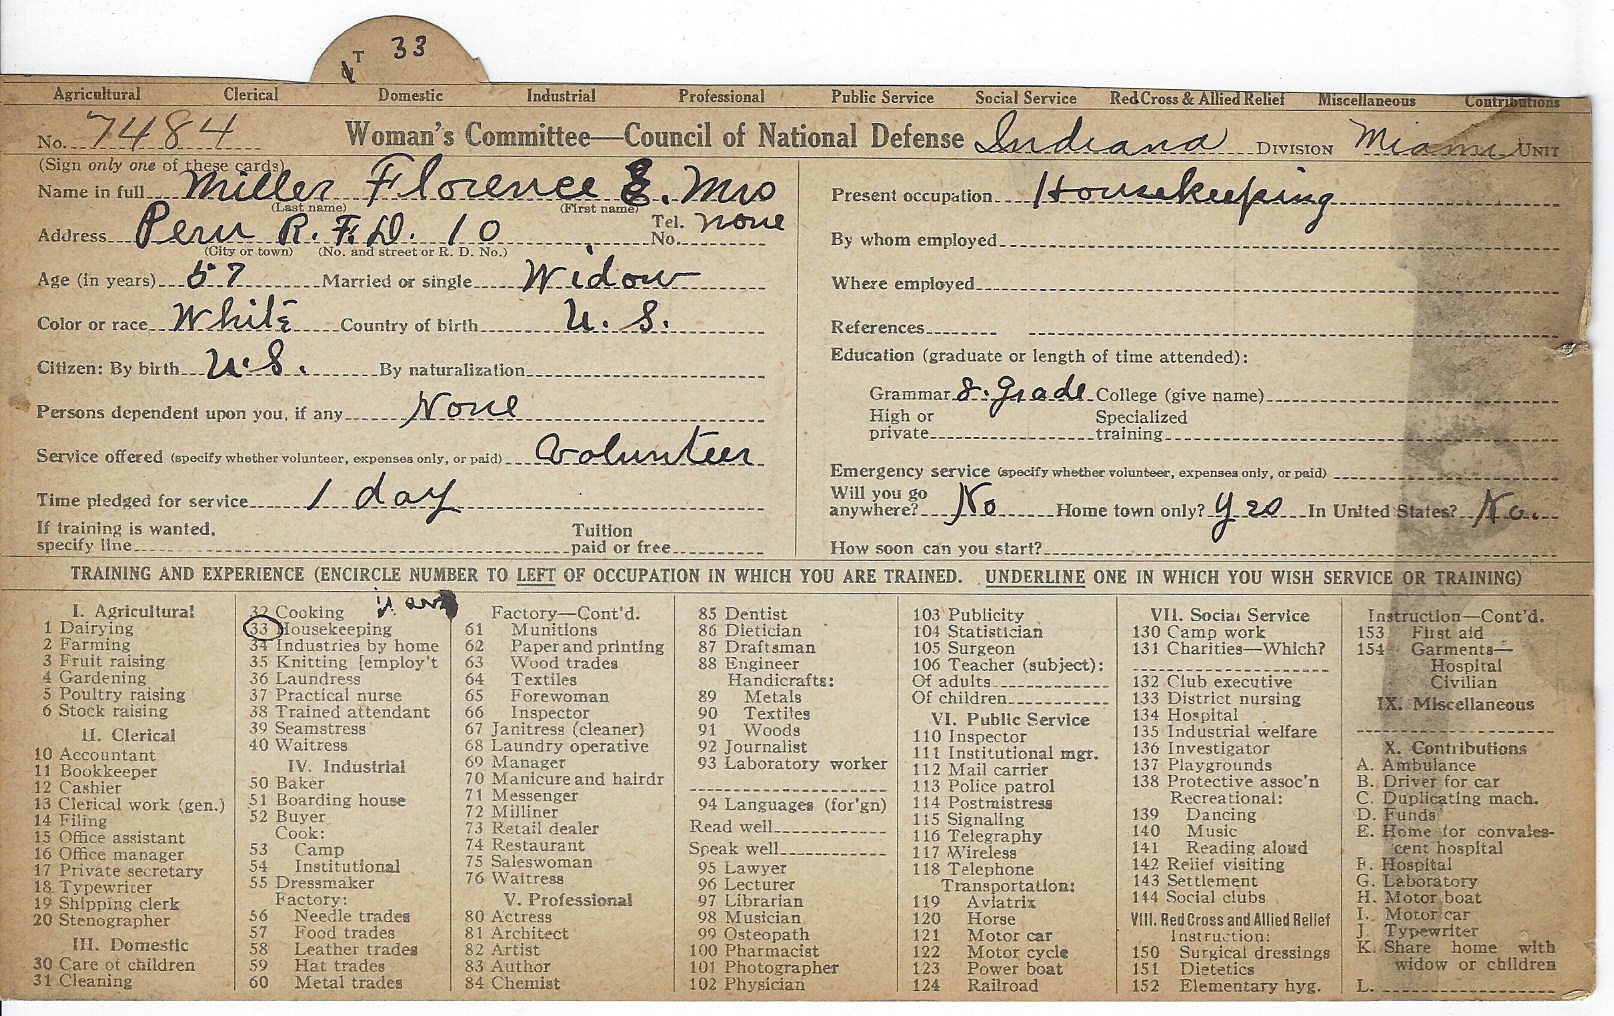 T 33
Agricultural Clerical Domestic Industrial Professional Public Service Social Service Red Cross & Allied Relief Miscellaneous Contributions
No. 7484 Woman's Committee—Council of National Defense Indiana DIVISION Miami UNIT
(Sign only one of these cards)
Name in full Miller Florence E. Mrs
(Last name) (First name)
Address Peru R. F. D. 10 Tel. No. none
(City or town) (No. and street or R. D. No.)
Age (in years) 57 Married or single Widow
Color or race White Country of birth U. S.
Citizen: By birth U.S. By naturalization
Persons dependent upon you, if any None
Service offered (specify whether volunteer, expenses only, or paid) Volunteer
Time pledged for service 1 day
If training is wanted, specify line Tuition paid or free
Present occupation Housekeeping
By whom employed
Where employed
References
Education (graduate or length of time attended):
Grammar 8. grade College (give name)
High or private Specialized training
Emergency service (specify whether volunteer, expenses only, or paid)
Will you go anywhere? No Home town only? Yes In United States? No.
How soon can you start?
TRAINING AND EXPERIENCE (ENCIRCLE NUMBER TO LEFT OF OCCUPATION IN WHICH YOU ARE TRAINED. UNDERLINE ONE IN WHICH YOU WISH SERVICE OR TRAINING)
I. Agricultural
1 Dairying
2 Farming
3 Fruit raising
4 Gardening
5 Poultry raising
6 Stock raising
II. Clerical
10 Accountant
11 Bookkeeper
12 Cashier
13 Clerical work (gen.)
14 Filing
15 Office assistant
16 Office manager
17 Private secretary
18 Typewriter
19 Shipping clerk
20 Stenographer
III. Domestic
30 Care of children
31 Cleaning
32 Cooking
33 Housekeeping
34 Industries by home
35 Knitting [employ't
36 Laundress
37 Practical nurse
38 Trained attendant
39 Seamstress
40 Waitress
IV. Industrial
50 Baker
51 Boarding house
52 Buyer
Cook:
53 Camp
54 Institutional
55 Dressmaker
Factory:
56 Needle trades
57 Food trades
58 Leather trades
59 Hat trades
60 Metal trades
Factory—Cont'd.
61 Munitions
62 Paper and printing
63 Wood trades
64 Textiles
65 Forewoman
66 Inspector
67 Janitress (cleaner)
68 Laundry operative
69 Manager
70 Manicure and hairdr
71 Messenger
72 Milliner
73 Retail dealer
74 Restaurant
75 Saleswoman
76 Waitress
V. Professional
80 Actress
81 Architect
82 Artist
83 Author
84 Chemist
85 Dentist
86 Dietician
87 Draftsman
88 Engineer
Handicrafts:
89 Metals
90 Textiles
91 Woods
92 Journalist
93 Laboratory worker
94 Languages (for'gn)
Read well
Speak well
95 Lawyer
96 Lecturer
97 Librarian
98 Musician
99 Osteopath
100 Pharmacist
101 Photographer
102 Physician
103 Publicity
104 Statistician
105 Surgeon
106 Teacher (subject):
Of adults
Of children
VI. Public Service
110 Inspector
111 Institutional mgr.
112 Mail carrier
113 Police patrol
114 Postmistress
115 Signaling
116 Telegraphy
117 Wireless
118 Telephone
Transportation:
119 Aviatrix
120 Horse
121 Motor car
122 Motor cycle
123 Power boat
124 Railroad
VII. Social Service
130 Camp work
131 Charities—Which?
132 Club executive
133 District nursing
134 Hospital
135 Industrial welfare
136 Investigator
137 Playgrounds
138 Protective assoc'n
Recreational:
139 Dancing
140 Music
141 Reading aloud
142 Relief visiting
143 Settlement
144 Social clubs
VIII. Red Cross and Allied Relief
Instruction:
150 Surgical dressings
151 Dietetics
152 Elementary hyg.
Instruction—Cont'd.
153 First aid
154 Garments—
Hospital
Civilian
IX. Miscellaneous
X. Contributions
A. Ambulance
B. Driver for car
C. Duplicating mach.
D. Funds
E. Home for convales-
cent hospital
F. Hospital
G. Laboratory
H. Motor boat
I. Motor car
J. Typewriter
K. Share home with
widow or children
L.